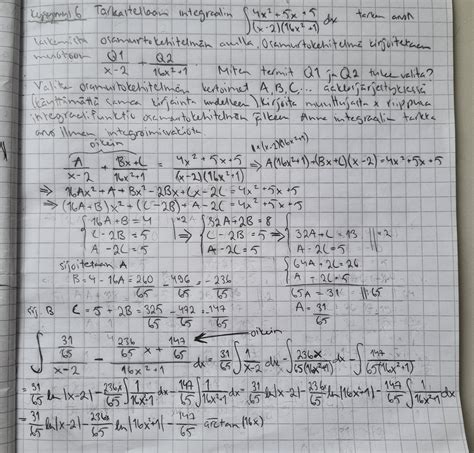 kysymys 6 Tarkastellaan integraalin ∫ (4x²+5x+5)/((x-2)(16x²+1)) dx tarkan arvon
laskemista osamurtokehitelmän avulla. Osamurtokehitelmä kirjoitetaan
muotoon Q1/(x-2) + Q2/(16x²+1). Miten termit Q1 ja Q2 tulee valita?
Valitse osamurtokehitelmän kertoimet A, B, C... aakkosjärjestyksessä
(käyttämättä samaa kirjainta uudelleen). Kirjoita muuttujasta x riippuva
integraali funktio osamurtokehitelmän jälkeen. Anna integraalin tarkka
arvo ilman integroimisvakiota.
oikein
A/(x-2) + (Bx+C)/(16x²+1) = (4x²+5x+5)/((x-2)(16x²+1)) ⇒ A(16x²+1)+(Bx+C)(x-2)=4x²+5x+5
⇒ 16Ax²+A+Bx²-2Bx+Cx-2C=4x²+5x+5
⇒ (16A+B)x²+(C-2B)+A-2C=4x²+5x+5
{16A+B=4 |·2 {32A+2B=8
{C-2B=5 ⇒ {C-2B=5 ⇒ {32A+C=13 ||·2
{A-2C=5 {A-2C=5 {A-2C=5
{64A+2C=26
sijoitetaan A {A-2C=5
B=4-16A=260/65-496/65=-236/65 65A=31 ||:65
sij. B C=5+2B=325/65-472/65=-147/65 A=31/65
oikein
∫ (31/65)/(x-2) - (236/65 x + 147/65)/(16x²+1) dx = 31/65 ∫ 1/(x-2) dx - ∫ 236x/(65(16x²+1)) dx - ∫ 147/(65(16x²+1))
= 31/65 ln|x-2| - 236x/65 ∫ 1/(16x²+1) dx - 147/65 ∫ 1/(16x²+1) dx = 31/65 ln|x-2| - 236x/65 ln|16x²+1| - 147/65 ∫ 1/(16x²+1) dx
= 31/65 ln|x-2| - 236x/65 ln|16x²+1| - 147/65 arctan(16x)